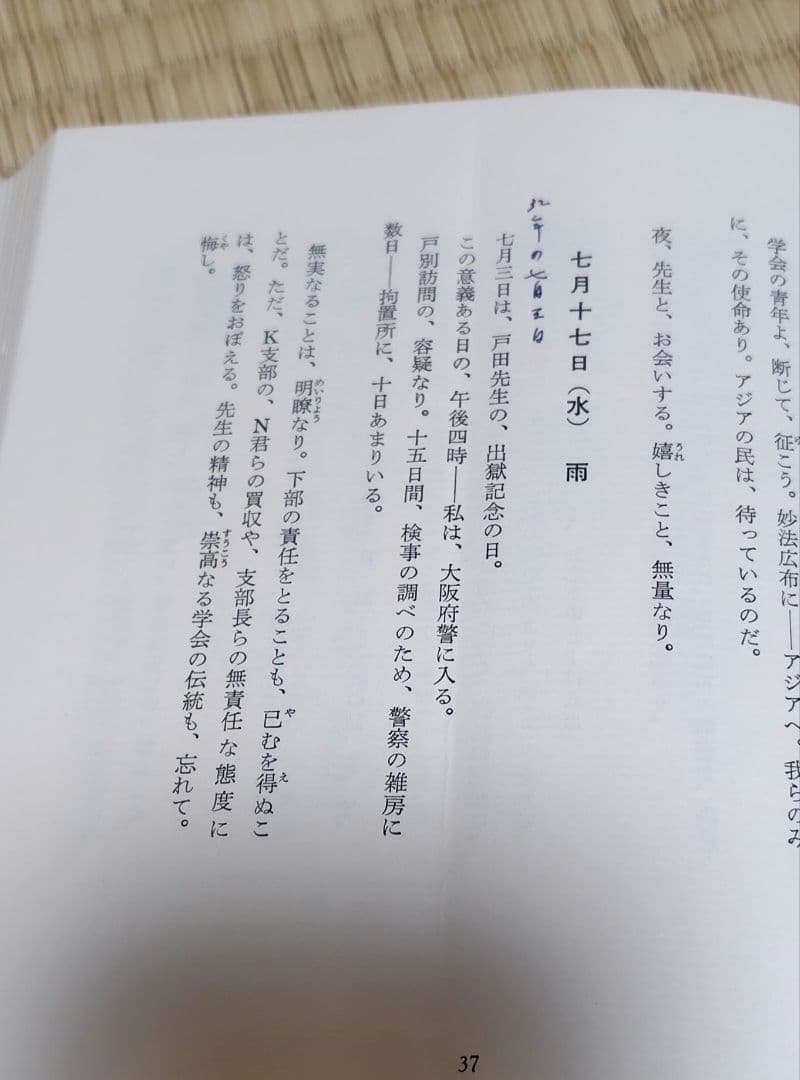 学会の青年よ、断じて、征こう。妙法広布に——アジアへ。我らのみ
に、その使命あり。アジアの民は、待っているのだ。
夜、先生と、お会いする。嬉しきこと、無量なり。
七月十七日（水）　雨
32年の七月三日
七月三日は、戸田先生の、出獄記念の日。
この意義ある日の、午後四時——私は、大阪府警に入る。
戸別訪問の、容疑なり。十五日間、検事の調べのため、警察の雑房に
数日——拘置所に、十日あまりいる。
無実なることは、明瞭なり。下部の責任をとることも、已むを得ぬこ
とだ。ただ、K支部の、N君らの買収や、支部長らの無責任な態度に
は、怒りをおぼえる。先生の精神も、崇高なる学会の伝統も、忘れて。
悔し。
37